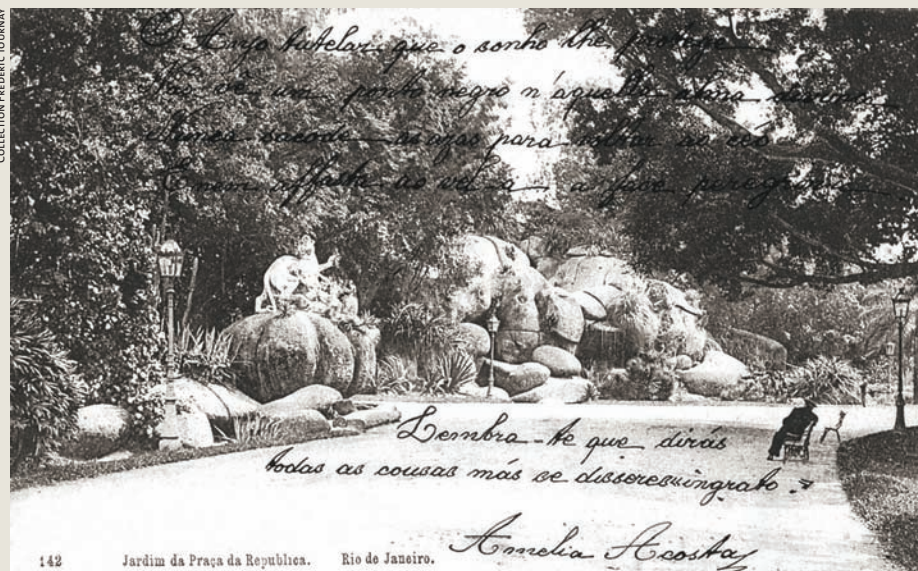 COLLECTION FRÉDÉRIC TOURNAY
O Anjo tutelar que o sonho lhe protege
Não vê um ponto negro n'aquella alma divina
sacode as azas para voltar ao céo
E nem affasta ao vel-a a face peregrina
Lembra-te que dirás
todas as cousas más se disseres ingrato
Amelia Acosta
142 Jardim da Praça da Republica. Rio de Janeiro.